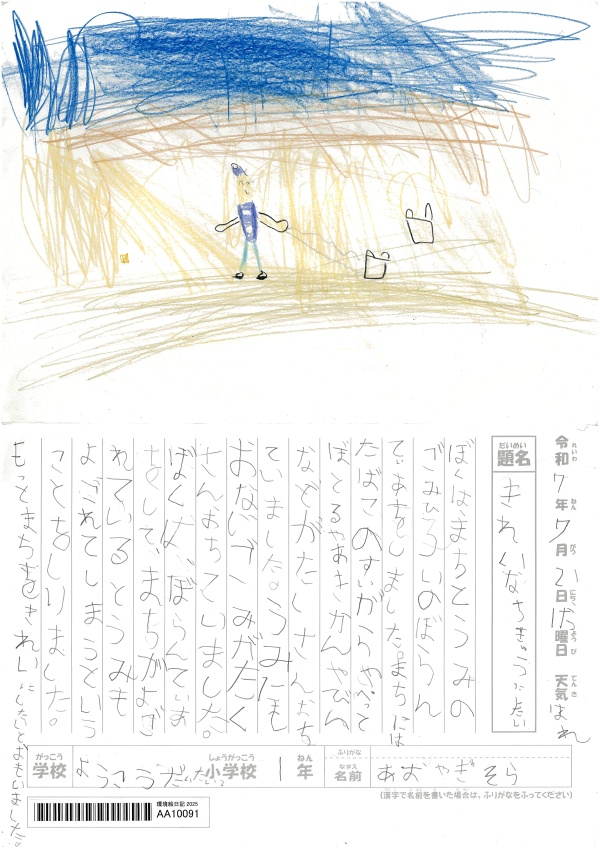 令和7年7月21日げつ曜日 天気はれ
れいわ ねん がつ にち ようび てんき
だいめい
題名 きれいなちきゅうにしたい
ぼくは、まちとうみの
ごみひろいのぼらん
てぃあをしました。まちには
たばこのすいがらやぺっと
ぼとるやあきかんやびん
などがたくさんおち
ていました。うみにも
おなじごみがたく
さんおちていました。
ぼくは、ぼらんてぃあ
をして、まちがよご
れているとうみも
よごれてしまうという
ことをしりました。
もっとまちをきれいにしたいとおもいました。
がっこう しょうがっこう ねん ふりがな
学校 ようこうだい小学校 1年 なまえ 名前 あおやぎそら
(漢字で名前を書いた場合は、ふりがなをふってください)
環境絵日記 2025
AA10091